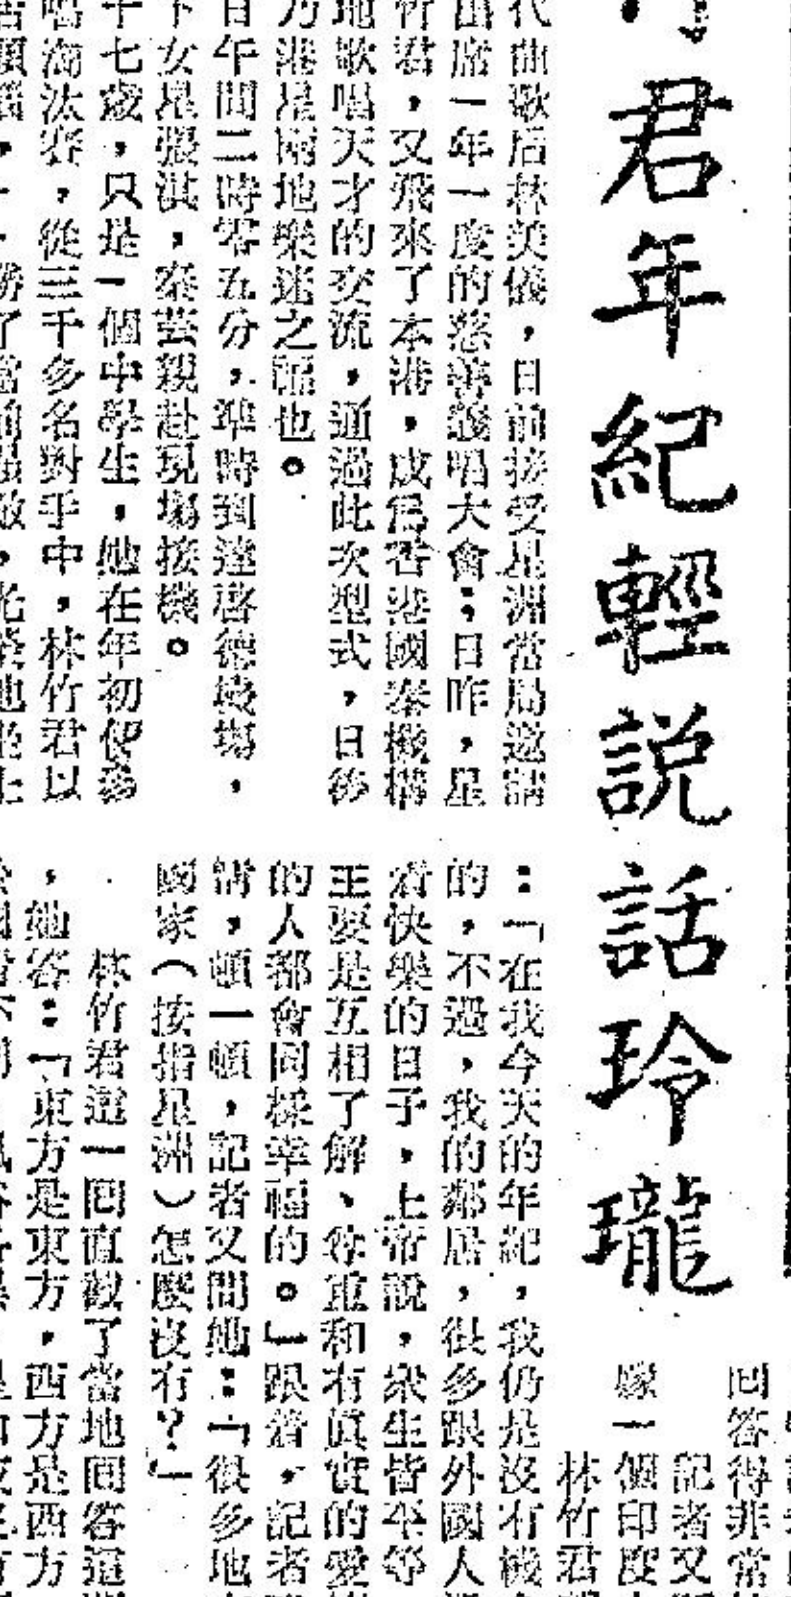 君年紀輕說話玲瓏
代曲歌后林美儀，日前接受星洲當局邀請
出席一年一度的慈善義唱大會；日昨，星
竹君，又飛來了本港，成爲香港國泰機構
地歌唱天才的交流，通過此次型式，日後
乃港星兩地樂迷之福也。
日午間二時零五分，準時到達啓德機場，
下女星張淇，秦芸親赴現場接機。
十七歲，只是一個中學生，她在年初便參
唱淘汰賽，從三千多名對手中，林竹君以
回答得非常
記者又
嫁一個印度
林竹君
：「在我今天的年紀，我仍是沒有機
的，不過，我的鄰居，很多跟外國人
着快樂的日子，上帝說，衆生皆平等
主要是互相了解、尊重和有眞實的愛
的人都會同樣幸福的。」跟着，記者
情，頓一頓，記者又問她：「很多地
國家（按指星洲）怎麼沒有？」
林竹君這一回直截了當地回答這
，她答：「東方是東方，西方是西方